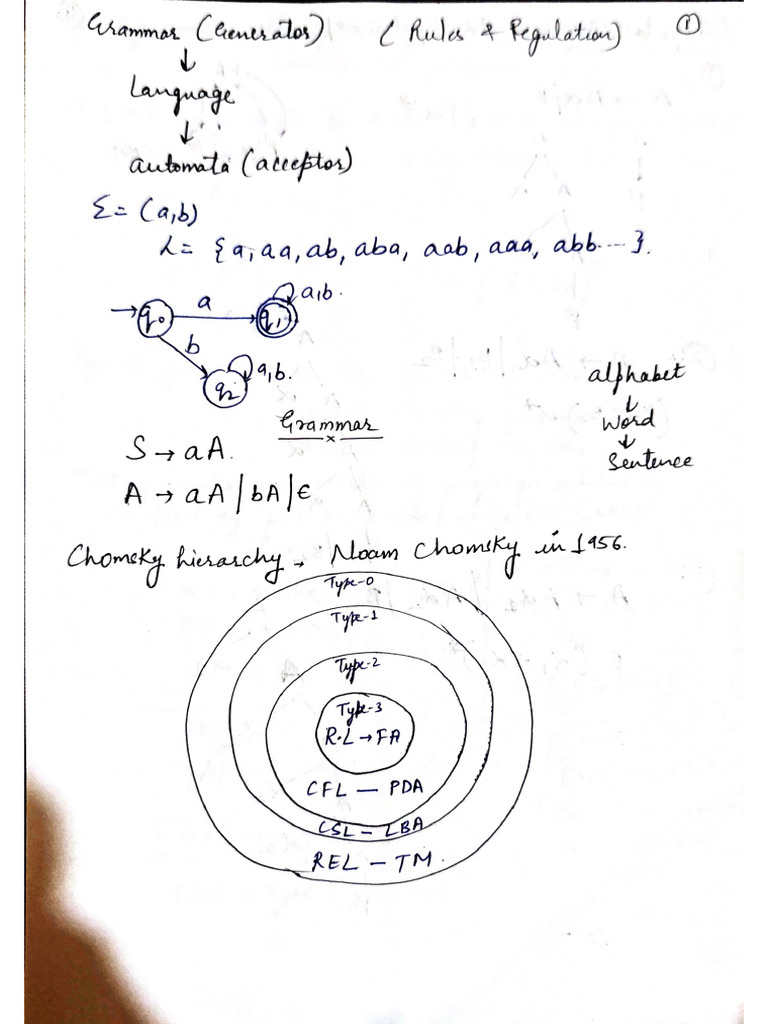 Grammar (Generator) ( Rules & Regulation) 1
↓
Language
↓
automata (acceptor)
Σ = (a,b)
L = {a, aa, ab, aba, aab, aaa, abb .... }.
→ q0 a q1 a,b.
b q2 a,b.
alphabet
↓
Word
↓
Sentence
Grammar
S → aA.
A → aA | bA | ϵ
Chomsky hierarchy → Noam Chomsky in 1956.
Type-0
Type-1
Type-2
Type-3
R.L → FA
CFL — PDA
CSL — LBA
REL — TM.